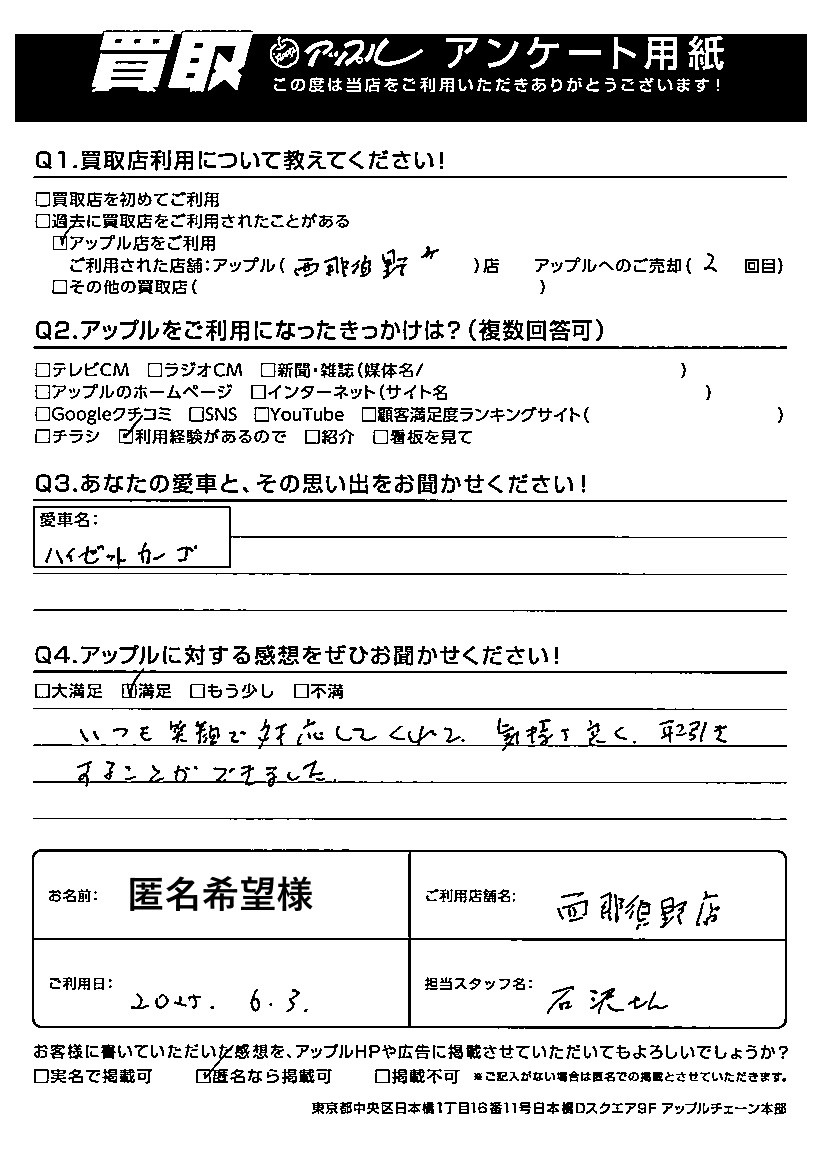 買取 アップル アンケート用紙
この度は当店をご利用いただきありがとうございます！
Q1.買取店利用について教えてください！
□買取店を初めてご利用
□過去に買取店をご利用されたことがある
☑アップル店をご利用
ご利用された店舗：アップル（ 西那須野 ）店 アップルへのご売却（ 2 回目）
□その他の買取店（ ）
Q2.アップルをご利用になったきっかけは？（複数回答可）
□テレビCM □ラジオCM □新聞・雑誌（媒体名/ ）
□アップルのホームページ □インターネット（サイト名 ）
□Googleクチコミ □SNS □YouTube □顧客満足度ランキングサイト（ ）
□チラシ ☑利用経験があるので □紹介 □看板を見て
Q3.あなたの愛車と、その思い出をお聞かせください！
愛車名：
ハイゼットカーゴ
Q4.アップルに対する感想をぜひお聞かせください！
□大満足 ☑満足 □もう少し □不満
いつも笑顔で対応してくれて、気持ち良く、取引を
することができました。
お名前： 匿名希望様 ご利用店舗名： 西那須野店
ご利用日： 2025. 6. 3. 担当スタッフ名： 石沢さん
お客様に書いていただいた感想を、アップルHPや広告に掲載させていただいてもよろしいでしょうか？
□実名で掲載可 ☑匿名なら掲載可 □掲載不可 ※ご記入がない場合は匿名での掲載とさせていただきます。
東京都中央区日本橋1丁目16番11号日本橋Dスクエア9F アップルチェーン本部